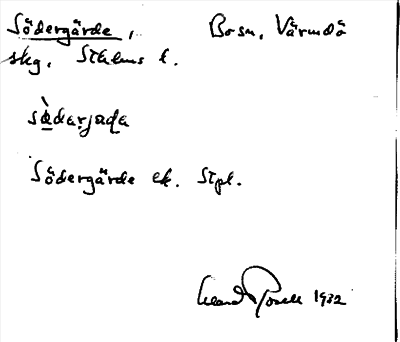 Södergärde, Bosn, Värmdö
skg, Sthlms l.
sàdarjada
Södergärde ek. Stpl.
1932